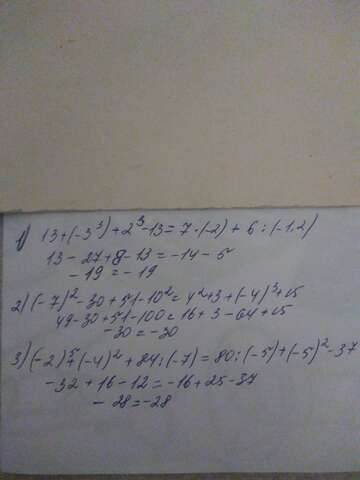 1) 13+(-3³)+2³-13=7·(-2)+6:(-1,2)
13-27+8-13=-14-5
-19=-19
2) (-7)²-30+51-10²=4²+3+(-4)³+15
49-30+51-100=16+3-64+15
-30=-30
3) (-2)⁵+(-4)²+84:(-7)=80:(-5)+(-5)²-37
-32+16-12=-16+25-37
-28=-28